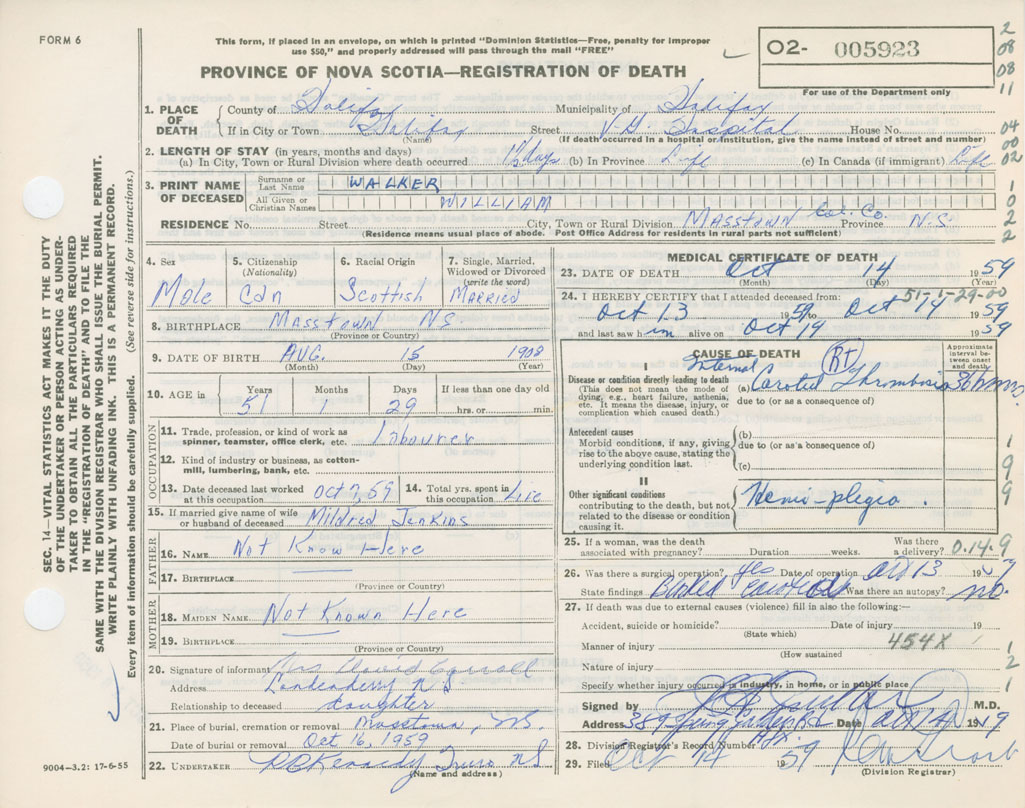 FORM 6
This form, if placed in an envelope, on which is printed "Dominion Statistics—Free, penalty for improper
use $50," and properly addressed will pass through the mail "FREE"
02- 005923
For use of the Department only
PROVINCE OF NOVA SCOTIA—REGISTRATION OF DEATH
1. PLACE OF DEATH County of Halifax Municipality of Halifax
If in City or Town Halifax Street V.G. Hospital House No.
(Name) (If death occurred in a hospital or institution, give the name instead of street and number)
2. LENGTH OF STAY (in years, months and days)
(a) In City, Town or Rural Division where death occurred 1½ days (b) In Province Life (c) In Canada (if immigrant) Life
3. PRINT NAME OF DECEASED Surname or Last Name WALKER
All Given or Christian Names WILLIAM
RESIDENCE No. Street City, Town or Rural Division MASSTOWN Col. Co. Province N.S.
(Residence means usual place of abode. Post Office Address for residents in rural parts not sufficient)
4. Sex Male
5. Citizenship (Nationality) Cdn
6. Racial Origin Scottish
7. Single, Married, Widowed or Divorced (write the word) MARRIED
8. BIRTHPLACE MASSTOWN N.S.
(Province or Country)
9. DATE OF BIRTH AUG. 15 1908
(Month) (Day) (Year)
10. AGE in Years 51 Months 1 Days 29 If less than one day old hrs. or min.
OCCUPATION
11. Trade, profession, or kind of work as spinner, teamster, office clerk, etc. Labourer
12. Kind of industry or business, as cotton-mill, lumbering, bank, etc.
13. Date deceased last worked at this occupation Oct 7, 59
14. Total yrs. spent in this occupation Life
15. If married give name of wife or husband of deceased Mildred Jenkins
FATHER
16. NAME Not Know Here
17. BIRTHPLACE
(Province or Country)
MOTHER
18. MAIDEN NAME Not Known Here
19. BIRTHPLACE
(Province or Country)
20. Signature of informant Mrs David
Address Londonderry N S
Relationship to deceased daughter
21. Place of burial, cremation or removal Masstown, NS.
Date of burial or removal Oct 16, 1959
22. UNDERTAKER Kennedy Truro N S
(Name and address)
9004—3.2: 17-6-55
MEDICAL CERTIFICATE OF DEATH
23. DATE OF DEATH Oct 14 1959
(Month) (Day) (Year)
51-1-29-00
24. I HEREBY CERTIFY that I attended deceased from:
Oct 13 1959 to Oct 14 1959
and last saw him alive on Oct 14 1959
CAUSE OF DEATH
Approximate interval between onset and death
I
Disease or condition directly leading to death
(This does not mean the mode of dying, e.g., heart failure, asthenia, etc. It means the disease, injury, or complication which caused death.)
(a) Internal Carotid Thrombosis (Rt)
due to (or as a consequence of)
Antecedent causes
Morbid conditions, if any, giving rise to the above cause, stating the underlying condition last.
(b)
due to (or as a consequence of)
(c)
II
Other significant conditions
contributing to the death, but not related to the disease or condition causing it.
Hemi-plegia.
25. If a woman, was the death associated with pregnancy? Duration weeks. Was there a delivery? 0.14.9
26. Was there a surgical operation? Yes Date of operation Oct 13 19
State findings Was there an autopsy? no.
27. If death was due to external causes (violence) fill in also the following:—
Accident, suicide or homicide? Date of injury 19
(State which)
Manner of injury 454X
(How sustained
Nature of injury
Specify whether injury occurred in industry, in home, or in public place
Signed by M.D.
Address Date Oct 14 19
28. Division Registrar's Record Number
29. Filed Oct 14 1959
(Division Registrar)
SEC. 14—VITAL STATISTICS ACT MAKES IT THE DUTY
OF THE UNDERTAKER OR PERSON ACTING AS UNDER-
TAKER TO OBTAIN ALL THE PARTICULARS REQUIRED
IN THE "REGISTRATION OF DEATH" AND TO FILE THE
SAME WITH THE DIVISION REGISTRAR WHO SHALL ISSUE THE BURIAL PERMIT.
WRITE PLAINLY WITH UNFADING INK. THIS IS A PERMANENT RECORD.
Every item of information should be carefully supplied. (See reverse side for instructions.)
2
08
08
11
04
00
02
1
0
2
2
1
9
9
1
2
1